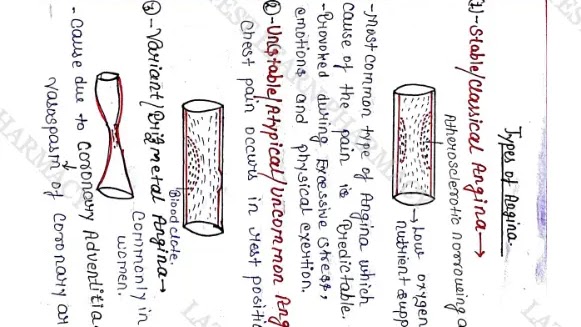 Types of Angina
1)-Stable/Classical Angina→
Atherosclerotic narrowing
→Low oxygen
nutrient supp
-Most common type of Angina which
cause of the pain is Predictable.
-Provoked during Excessive stress,
emotions and physical exertion.
②-Unstable/Atypical/Uncommon Ang
chest pain occurs in rest positi
Blood clote.
③-Variant/Prizmetal Angina→
Commonly in
women.
-Cause due to Coronary Adventitia
vasospasm of coronary ar